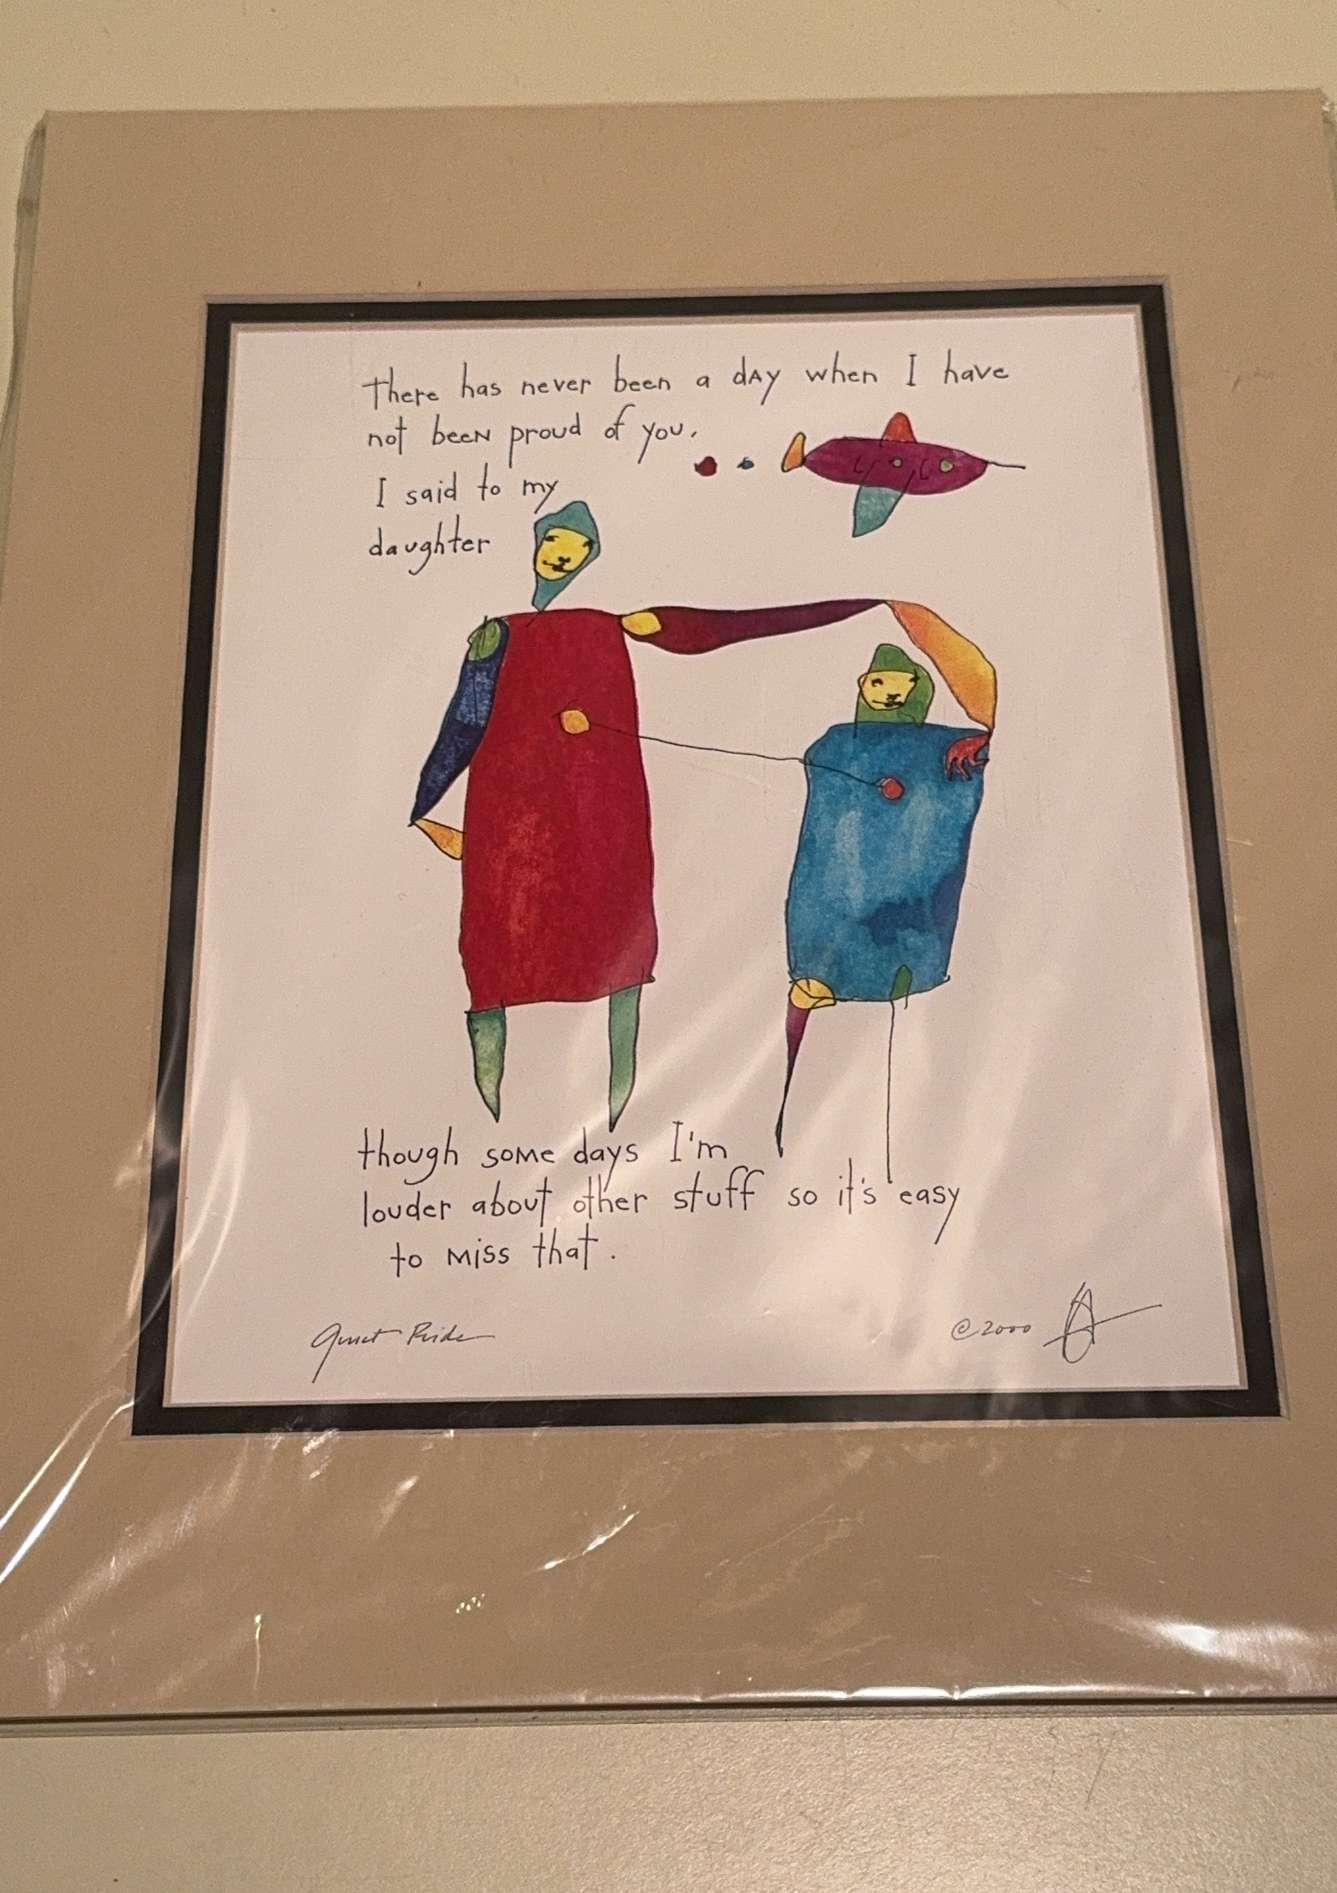 there has never been a day when I have
not been proud of you,
I said to my
daughter
though some days I'm
louder about other stuff so it's easy
to miss that.
Quiet Pride
©2000